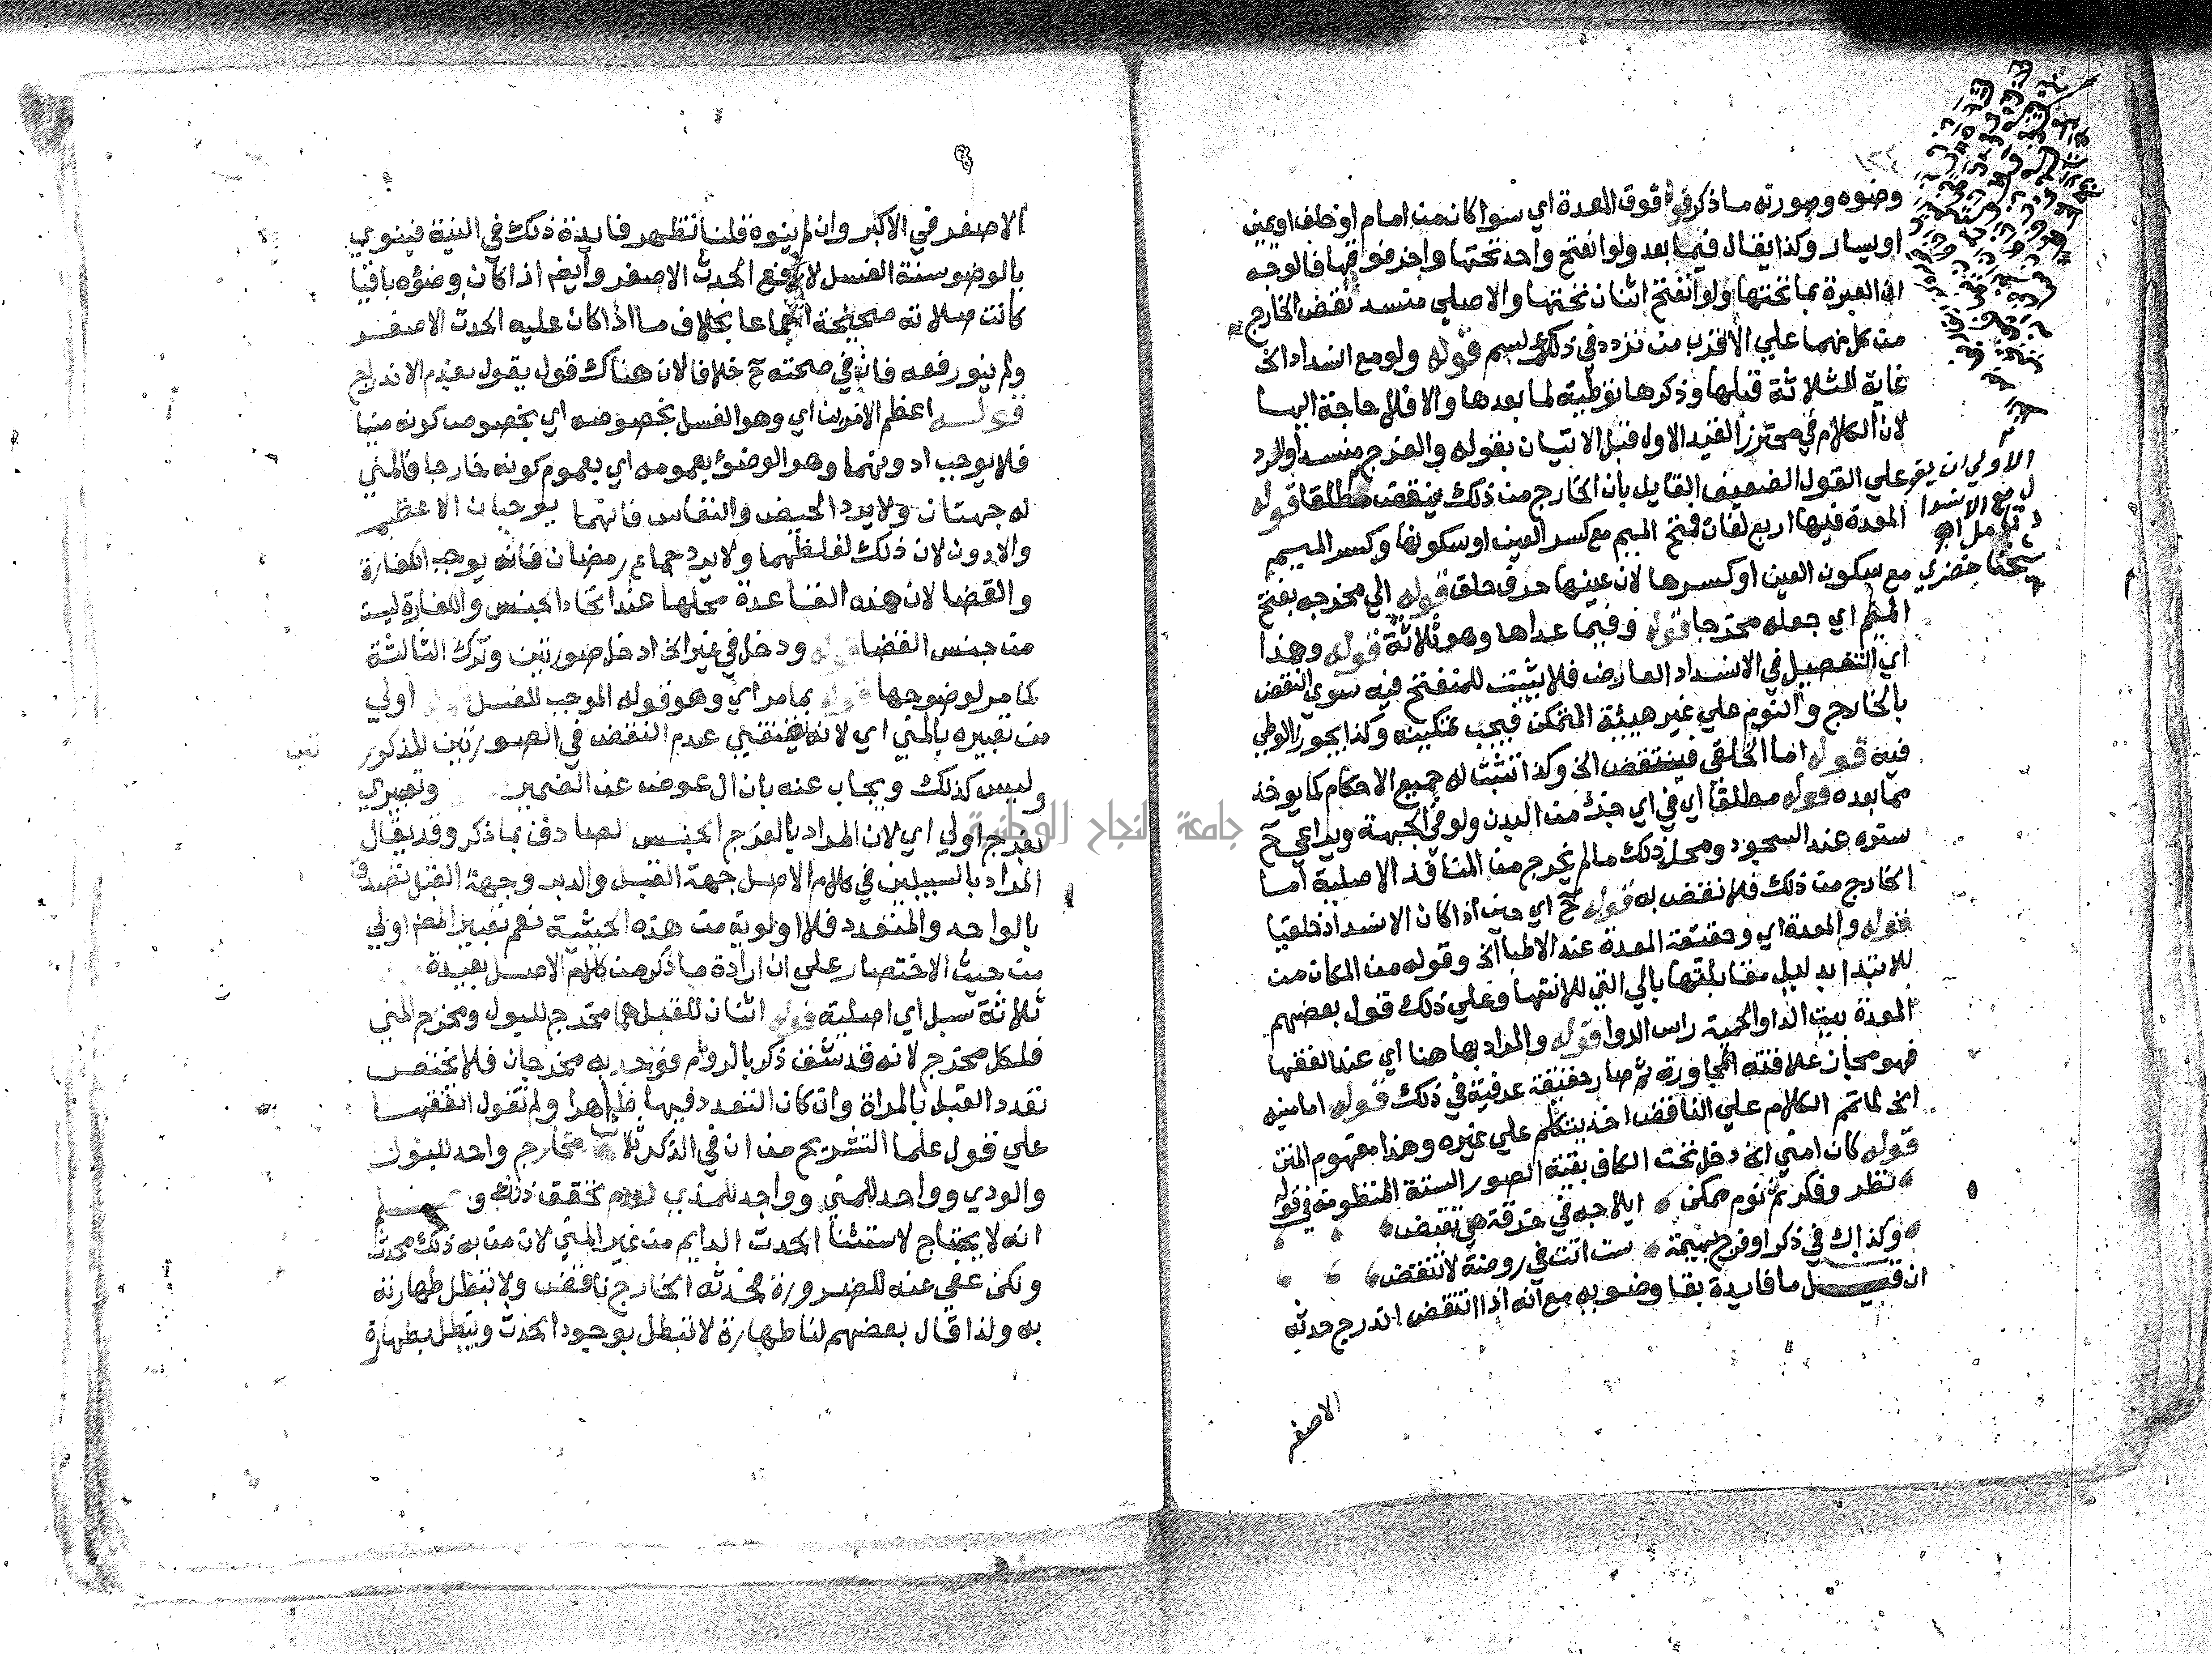 وضوه وصورته ما ذكر قوله فوق المعدة اي سوا كان من امام او خلف او يمين
او يسار وكذا يقال فيما بعد ولو انفتح واحد تحتها واخر فوقها فالوجه
ان العبرة بما تحتها ولو انفتح اثنان تحتها والاصلي منسد نقض الخارج
من كل منهما علي الاقرب من تردد في ذلك لسم قوله ولو مع انسداد الخ
غاية للثلاثة قبلها وذكرها توطية لما بعدها والا فلا حاجة اليها
لان الكلام في محترز القيد الاول قبل الاتيان بقوله والفرج منسد او للرد
علي القول الضعيف القايل بان الخارج من ذلك ينقض مطلقا قوله
المعدة فيها اربع لغات فتح الميم مع كسر العين او سكونها وكسر الميم
مع سكون العين او كسرها لان عينها حرف حلق قوله الي مخرجه بفتح
الميم اي جعله مخرجا قوله وفيما عداها وهو ثلاثة قوله وهذا
اي التفصيل في الانسداد العارض فلا يثبت للمنفتح فيه سوي النقض
بالخارج والنوم علي غير هيئة المتمكن فيجب تمكينه وكذا يجوز الوطي
فيه قوله اما الخلقي فينتقض الخ وكذا تثبت له جميع الاحكام كما يوخذ
مما بعده قوله مطلقا اي في اي جزء من البدن ولو في الجبهة ويراعي ح
ستره عند السجود ومحل ذلك ما لم يخرج من المنافذ الاصلية اما
الخارج من ذلك فلا نقض به قوله ح اي حين اذ كان الانسداد خلقيا
قوله والمعدة اي وحقيقة المعدة عند الاطبا الخ وقوله من المكان من
للابتدا بدليل مقابلتها بالي التي للانتها وعلي ذلك قول بعضهم
المعدة بيت الدا والحمية راس الدوا قوله والمراد بها هنا اي عند الفقها
فهو مجاز علاقته المجاورة ثم صار حقيقة عرفية في ذلك قوله اما منيه
الخ لما تمم الكلام علي الناقض اخذ يتكلم علي غيره وهذا مفهوم المتن
قوله كان امني الخ دخل تحت الكاف بقية الصور الستة المنظومة في قوله
نظر وفكر ثم نوم ممكن ايلاجه في خرقة هي تقبض
وكذاك في ذكر او فرج بهيمة ست اتت في روضة لا تنقض
ان قيل ما فايدة بقا وضويه مع انه اذا انتقض اندرج حدثه
الاصغر
الاولي ان يقو
ل مع الانسدا
د تامل اهـ
شيخنا خضري
الاصغر في الاكبر وان لم ينوه قلنا تظهر فايدة ذلك في النية فينوي
بالوضو سنة الغسل لا رفع الحدث الاصغر وايضا اذا كان وضؤه باقيا
كانت صلاته صحيحة اجماعا بخلاف ما اذا كان عليه الحدث الاصغر
ولم ينو رفعه فان في صحته ح خلافا لان هناك قول يقول بعدم الاندراج
قوله اعظم الامرين اي وهو الغسل بخصوصه اي بخصوص كونه منيا
فلا يوجب ادونهما وهو الوضوء بعمومه اي بعموم كونه خارجا فالمني
له جهتان ولا يرد الحيض والنفاس فانهما يوجبان الاعظم
والادون لان ذلك لغلظهما ولا يرد جماع رمضان فانه يوجب الكفارة
والقضا لان هذه القاعدة محلها عند اتحاد الجنس والكفارة ليست
من جنس القضا قوله ودخل في غير الخ ادخل صورتين وترك الثالثة
كما مر لوضوحها قوله بما مر اي وهو قوله الموجب للغسل قوله اولي
من تعبيره بالمني اي لانه يقتضي عدم النقض في الصورتين للمذكور تين
وليس كذلك ويجاب عنه بان ال عوض عن الضمير وتعبيري
بفرج اولي اي لان المراد بالفرج الجنس الصادق بما ذكر وقد يقال
المراد بالسبيلين في كلام الاصل جهة القبل والدبر وجهة القبل تصدق
بالواحد والمتعدد فلا اولوية من هذه الحيثية نعم تعبير المص اولي
من حيث الاختصار علي ان ارادة ما ذكر من كلام الاصل بعيدة
ثلاثة سبل اي اصلية قوله اثنان للقبل هما مخرج للبول ومخرج المني
فلكل مخرج لانه قد شق ذكر بالروم فوجد به مخرجان فلا يختص
تعدد القبل بالمراة وان كان التعدد فيها ظاهرا ولم تقول الفقها
علي قول علما التشريح من ان في الذكر ثلاث مخارج واحد للبول
والودي وواحد للمني وواحد للمذي لعدم تحقق ذلك و
انه لا يحتاج لاستثنا الحدث الدايم من غير المني لان من به ذلك محدث
ولكن عفي عنه للضرورة فحدثه الخارج ناقض ولا تبطل طهارته
به ولذا قال بعضهم لنا طهارة لا تبطل بوجود الحدث وتبطل بطهارة
جامعة النجاح الوطنية